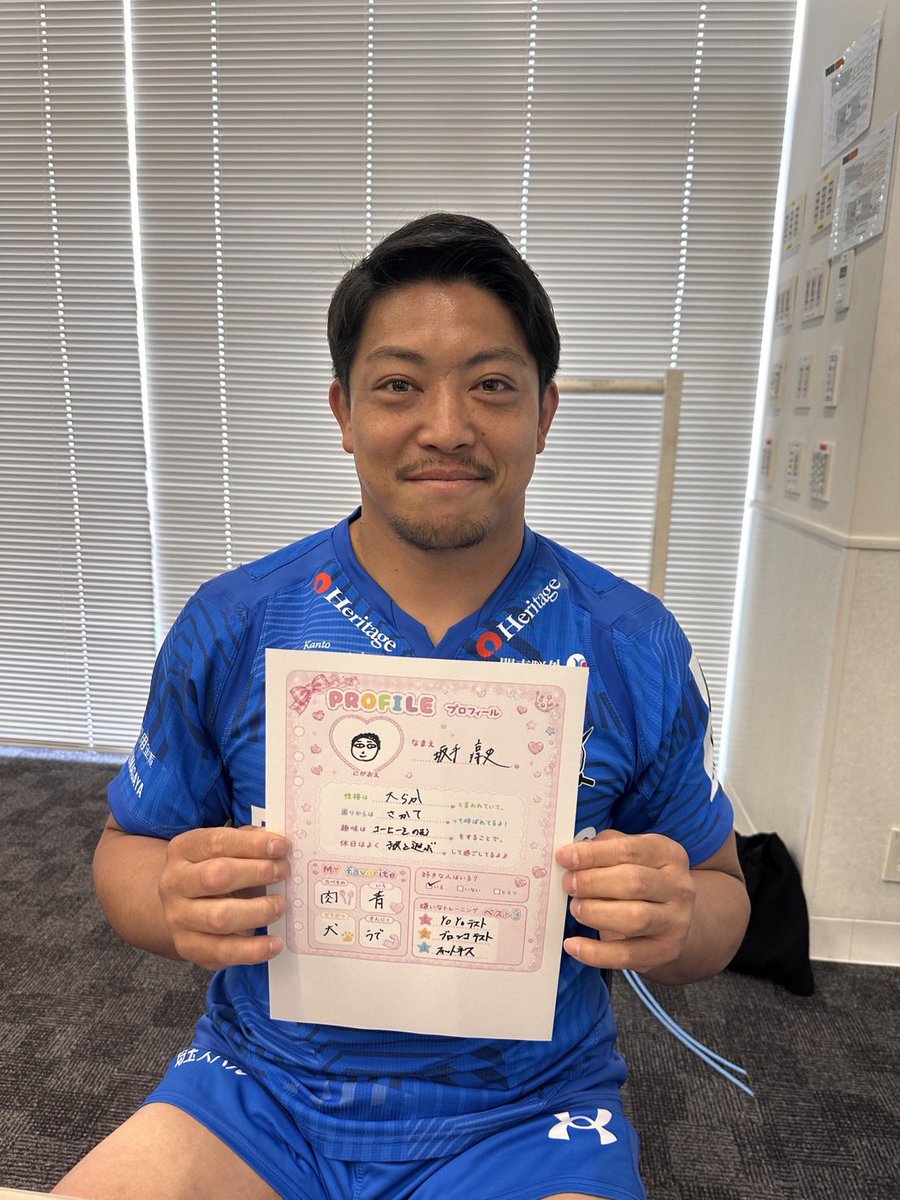 Heritage
Heritage
Kanto
PROFILE プロフィール
なまえ
坂手 淳史
にがおえ
性格は 大らか と言われていて、
周りからは さかて って呼ばれてるよ!
趣味は コーヒーをのむ をすることで、
休日はよく 子供と遊ぶ して過ごしてるよ♪
MY favorite
たべもの
肉
いろ
青
どうぶつ
犬
きんにく
うで
好きな人はいる?
いる いない ヒミツ
嫌いなトレーニング ベスト3
1 YoYoテスト
2 ブロンコテスト
3 フィットネス